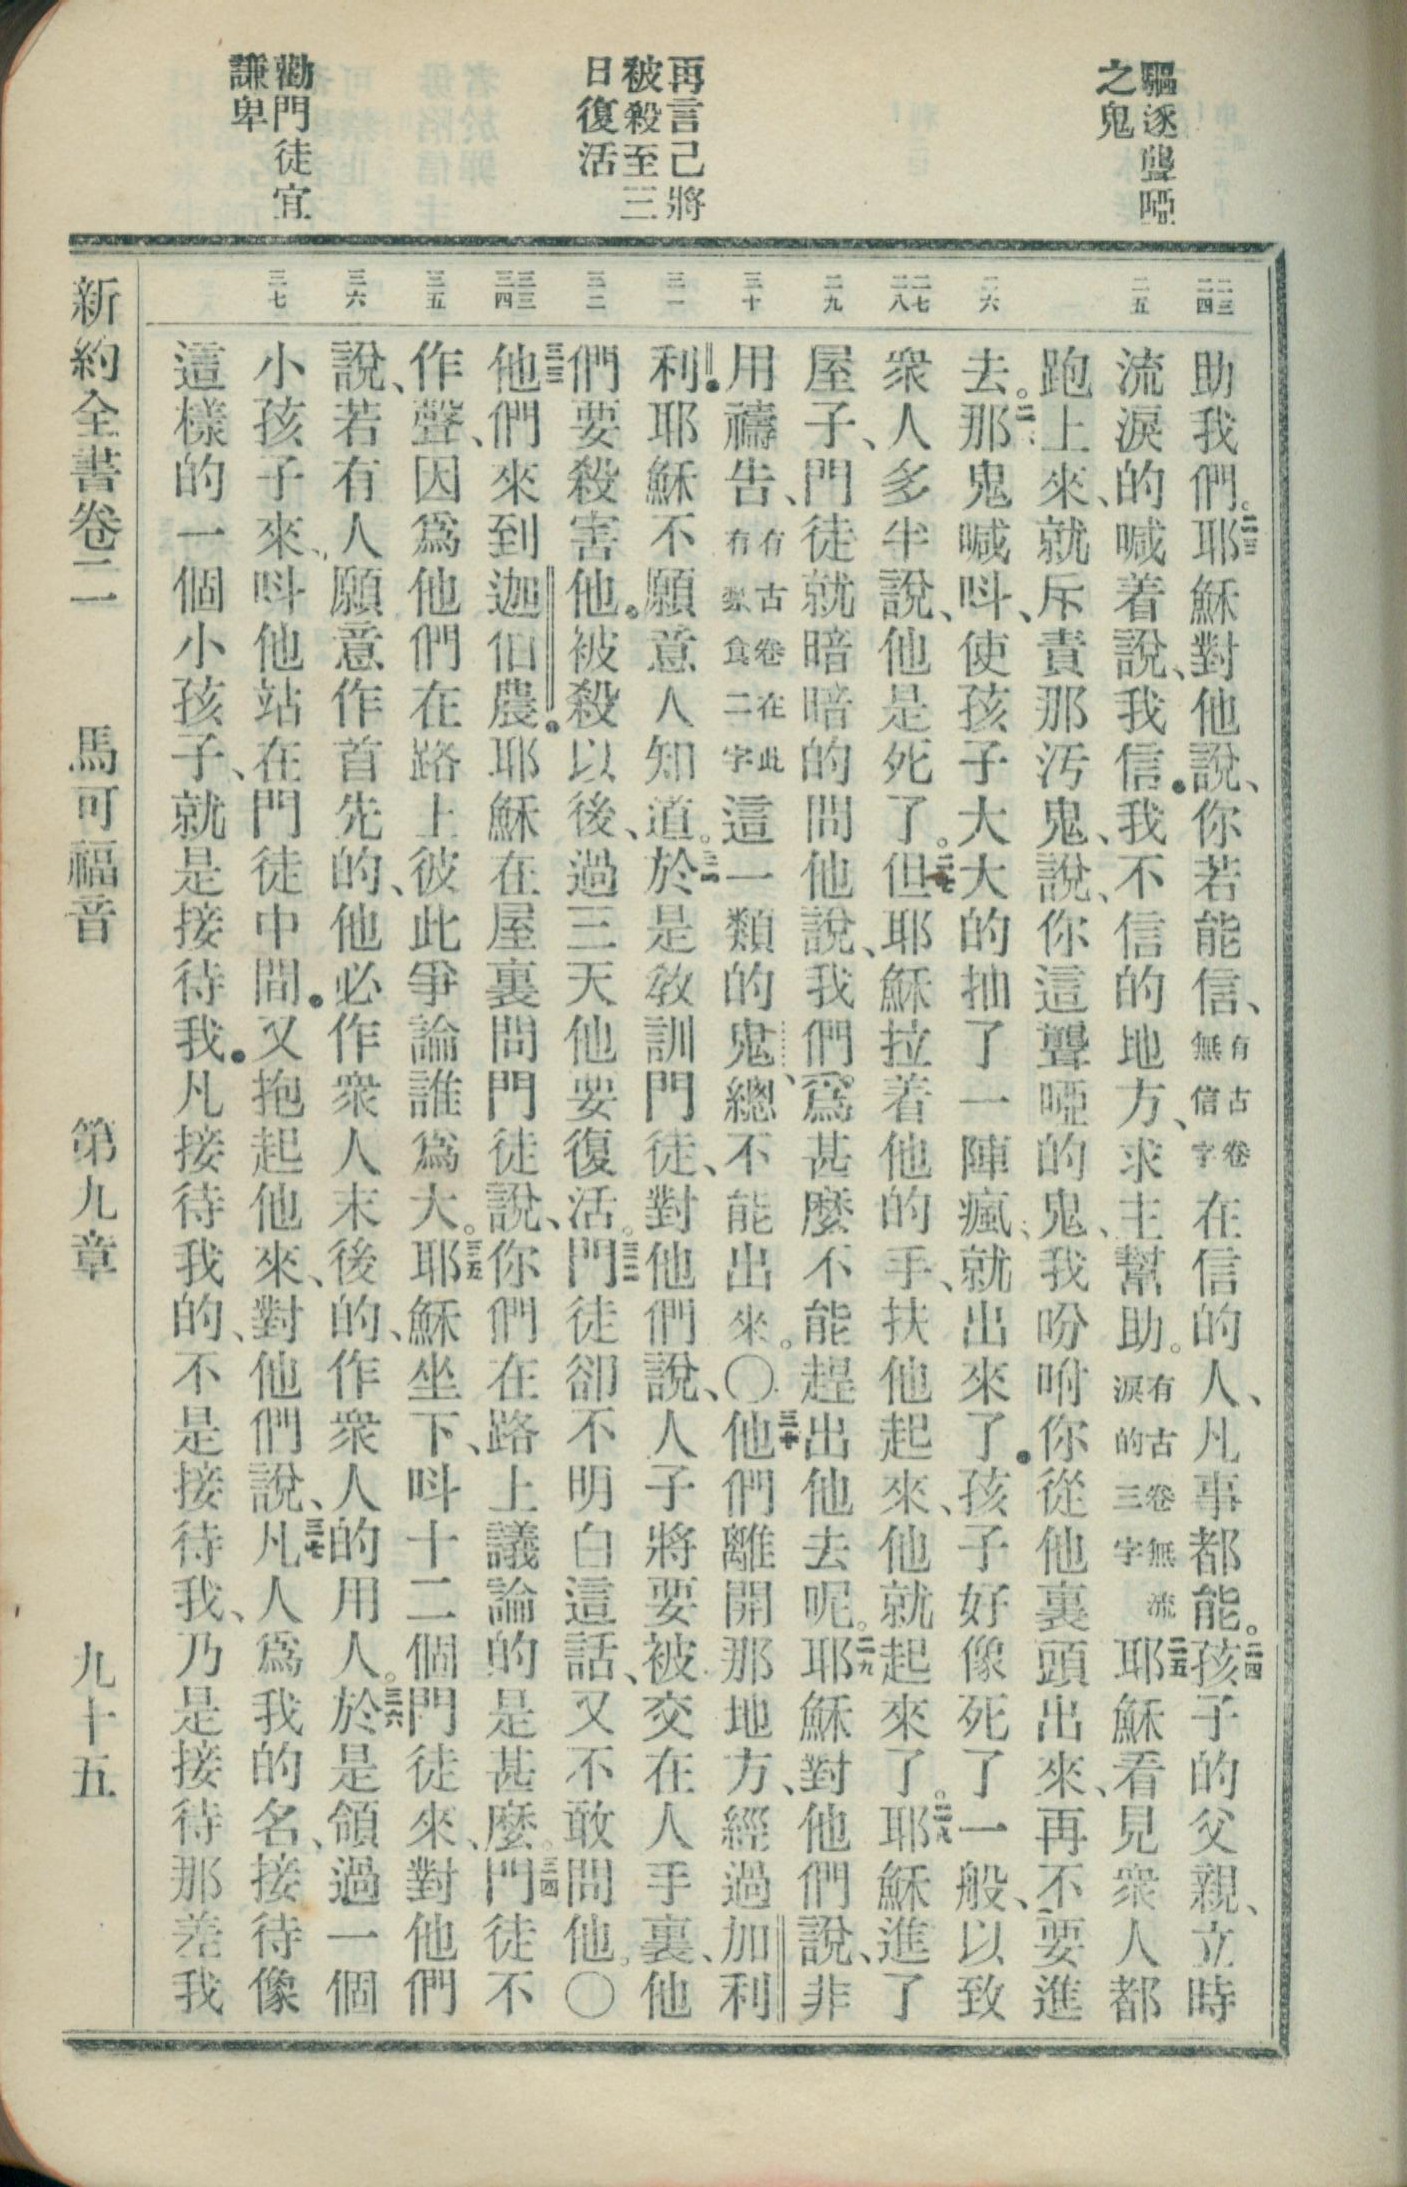 驅逐聾啞
之鬼
再言己將
被殺至三
日復活
勸門徒宜
謙卑
二三 二四 二五 二六 二七 二八 二九 三十 三一 三二 三三 三四 三五 三六 三七
助我們。二三耶穌對他說、你若能信、有古卷無信字在信的人、凡事都能。二四孩子的父親、立時
流淚的喊着說、我信．我不信的地方、求主幫助。有古卷無流淚的三字二五耶穌看見衆人都
跑上來、就斥責那汚鬼、說、你這聾啞的鬼、我吩咐你從他裏頭出來、再不要進
去。二六那鬼喊呌、使孩子大大的抽了一陣瘋、就出來了．孩子好像死了一般、以致
衆人多半說、他是死了。二七但耶穌拉着他的手、扶他起來、他就起來了。二八耶穌進了
屋子、門徒就暗暗的問他說、我們爲甚麼不能趕出他去呢。二九耶穌對他們說、非
用禱告、有古卷在此有禁食二字這一類的鬼、總不能出來。〇三十他們離開那地方、經過加利
利．耶穌不願意人知道。三一於是敎訓門徒、對他們說、人子將要被交在人手裏、他
們要殺害他．被殺以後、過三天他要復活。三二門徒卻不明白這話、又不敢問他。〇
三三他們來到迦伯農．耶穌在屋裏問門徒說、你們在路上議論的是甚麼。三四門徒不
作聲、因爲他們在路上彼此爭論誰爲大。三五耶穌坐下、呌十二個門徒來、對他們
說、若有人願意作首先的、他必作衆人末後的、作衆人的用人。三六於是領過一個
小孩子來、呌他站在門徒中間．又抱起他來、對他們說、三七凡人爲我的名、接待像
這樣的一個小孩子、就是接待我．凡接待我的、不是接待我、乃是接待那差我
新約全書卷二 馬可福音 第九章 九十五